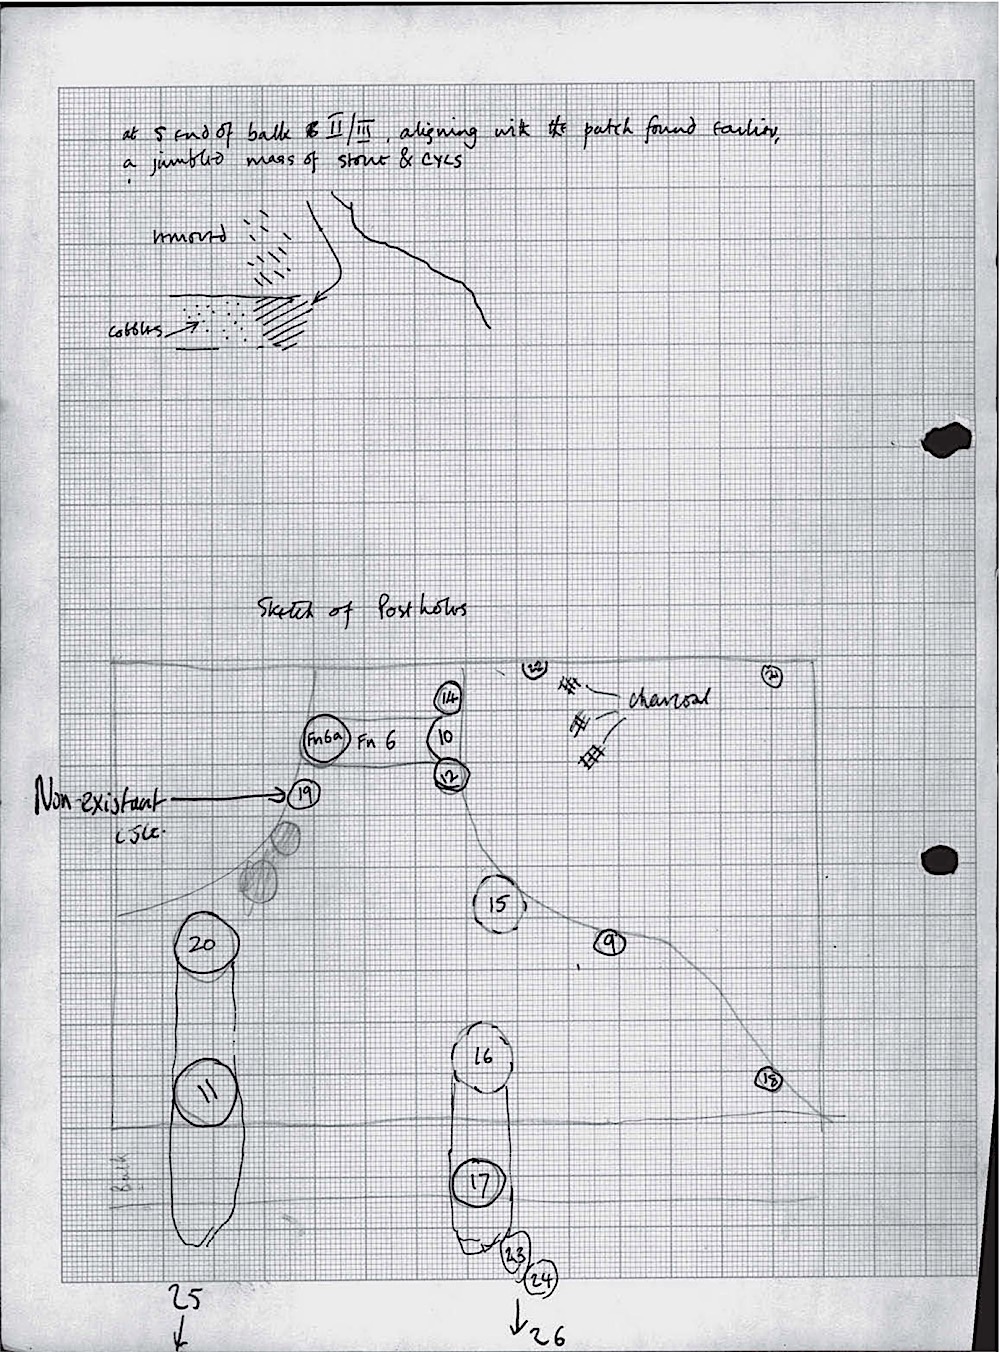 at S end of balk II/III, aligning with the patch found earlier,
a jumbled mass of stone &
removed
cobbles
Sketch of Postholes
22
21
14
charcoal
Fn6a
Fn 6
10
12
Non-existant
19
LSCC.
15
20
9
16
18
11
Baulk
17
23
24
25
26